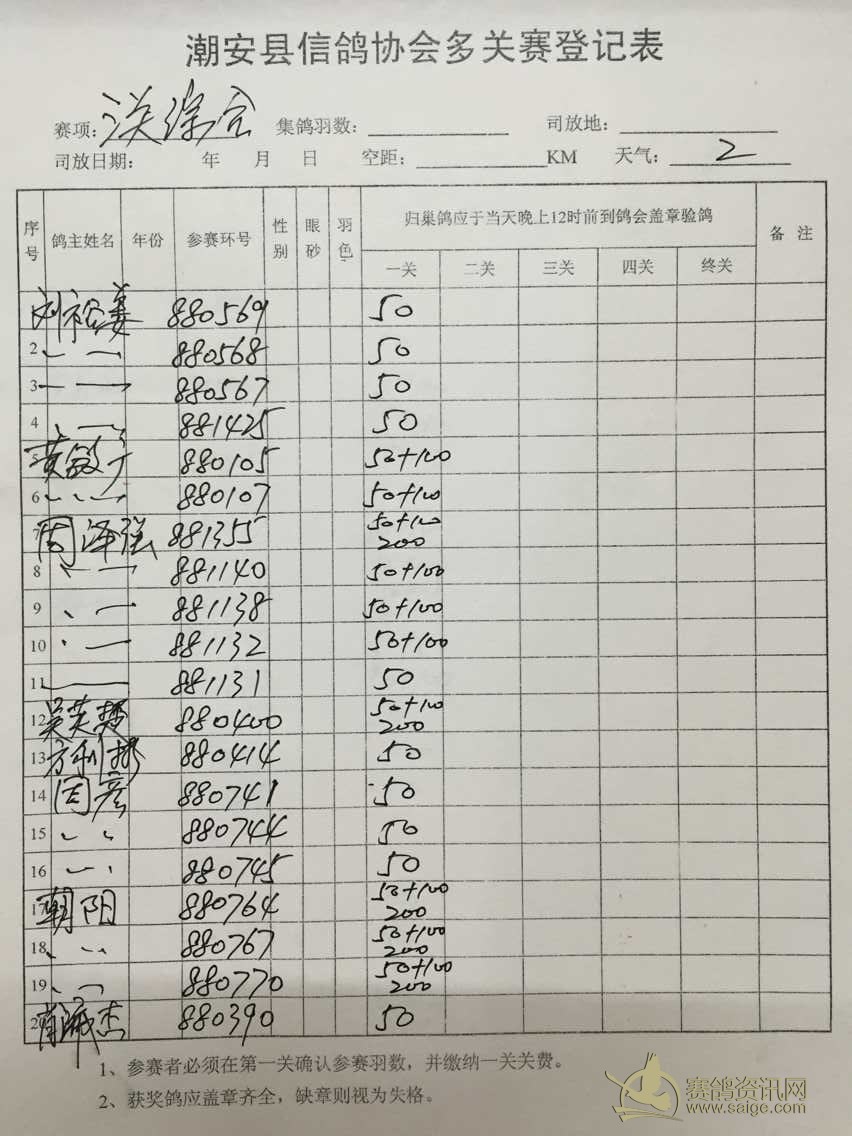 潮安县信鸽协会多关赛登记表
赛项: 综合 集鸽羽数: 司放地:
司放日期: 年 月 日 空距: KM 天气: 2
序号 鸽主姓名 年份 参赛环号 性别 眼砂 羽色 归巢鸽应于当天晚上12时前到鸽会盖章验鸽 备 注
一关 二关 三关 四关 终关
880569 50
2 880568 50
3 880567 50
4 881425 50
5 880105 50+100
6 880107 50+100
7 周泽强 881355 50+100
200
8 881140 50+100
9 881138 50+100
10 881132 50+100
11 881131 50
12 880400 50+100
200
13 880414 50
14 周彦 880741 50
15 880744 50
16 880745 50
17 朝阳 880764 50+100
200
18 880767 50+100
200
19 880770 50+100
200
20 880390 50
1、参赛者必须在第一关确认参赛羽数，并缴纳一关关费。
2、获奖鸽应盖章齐全，缺章则视为失格。
赛鸽资讯网
www.saige.com